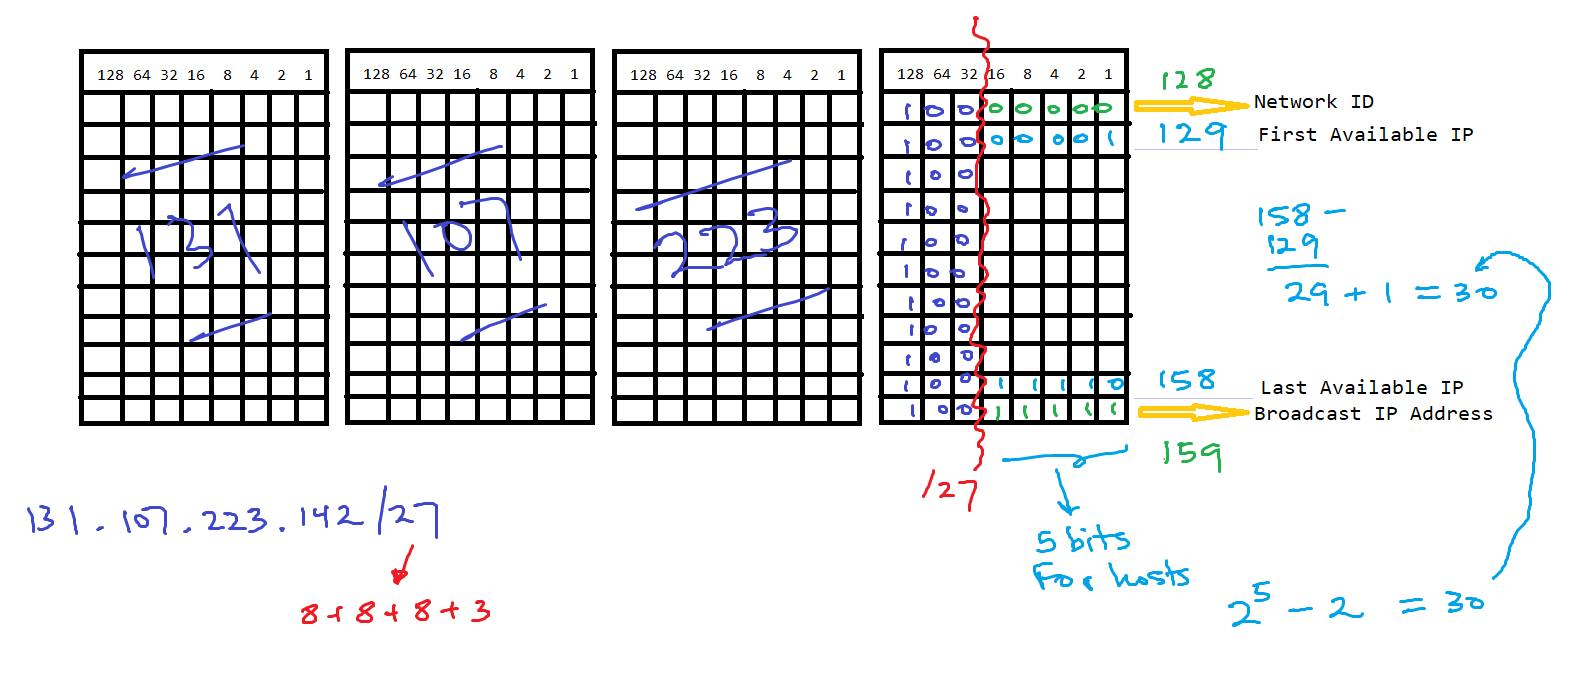 128 64 32 16 8 4 2 1
128 64 32 16 8 4 2 1
128 64 32 16 8 4 2 1
128 64 32 16 8 4 2 1
131
107
223
1 0 0 0 0 0 0 0
1 0 0 0 0 0 0 1
1 0 0
1 0 0
1 0 0
1 0 0
1 0 0
1 0 0
1 0 0
1 0 0 1 1 1 1 0
1 0 0 1 1 1 1 1
128
Network ID
129 First Available IP
158 -
129
29 + 1 = 30
158 Last Available IP
Broadcast IP Address
159
/27
5 bits
For hosts
2^5 - 2 = 30
131.107.223.142/27
8+8+8+3